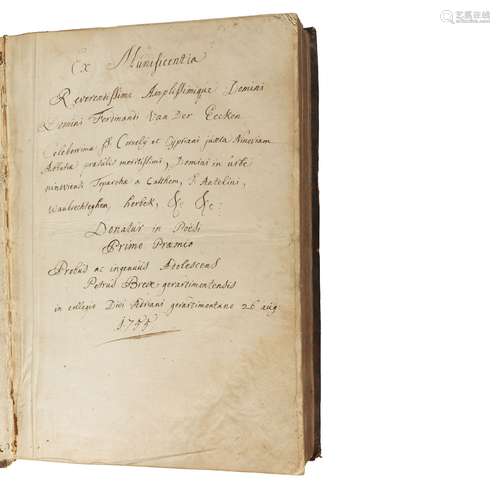 Ex Munificentia
Reverentissimi Amplissimique Domini
Domini Ferdinandi Van Der Eecken
Celeberrima SS Cornely et Cypriani juxta Niniviam
Abbatia præsulis meritissimi, Domini in urbe
ninoviensi Toparcha a Calthem, S Antelini,
Waubrechteghen, herbek, &c &c:
Donatur in Poësi
Primo Præmio
Probus ac ingenuus Adolescens
Petrus Breye gerardimontensis
in collegio Divi Adriani gerardimontano 26 aug
1755